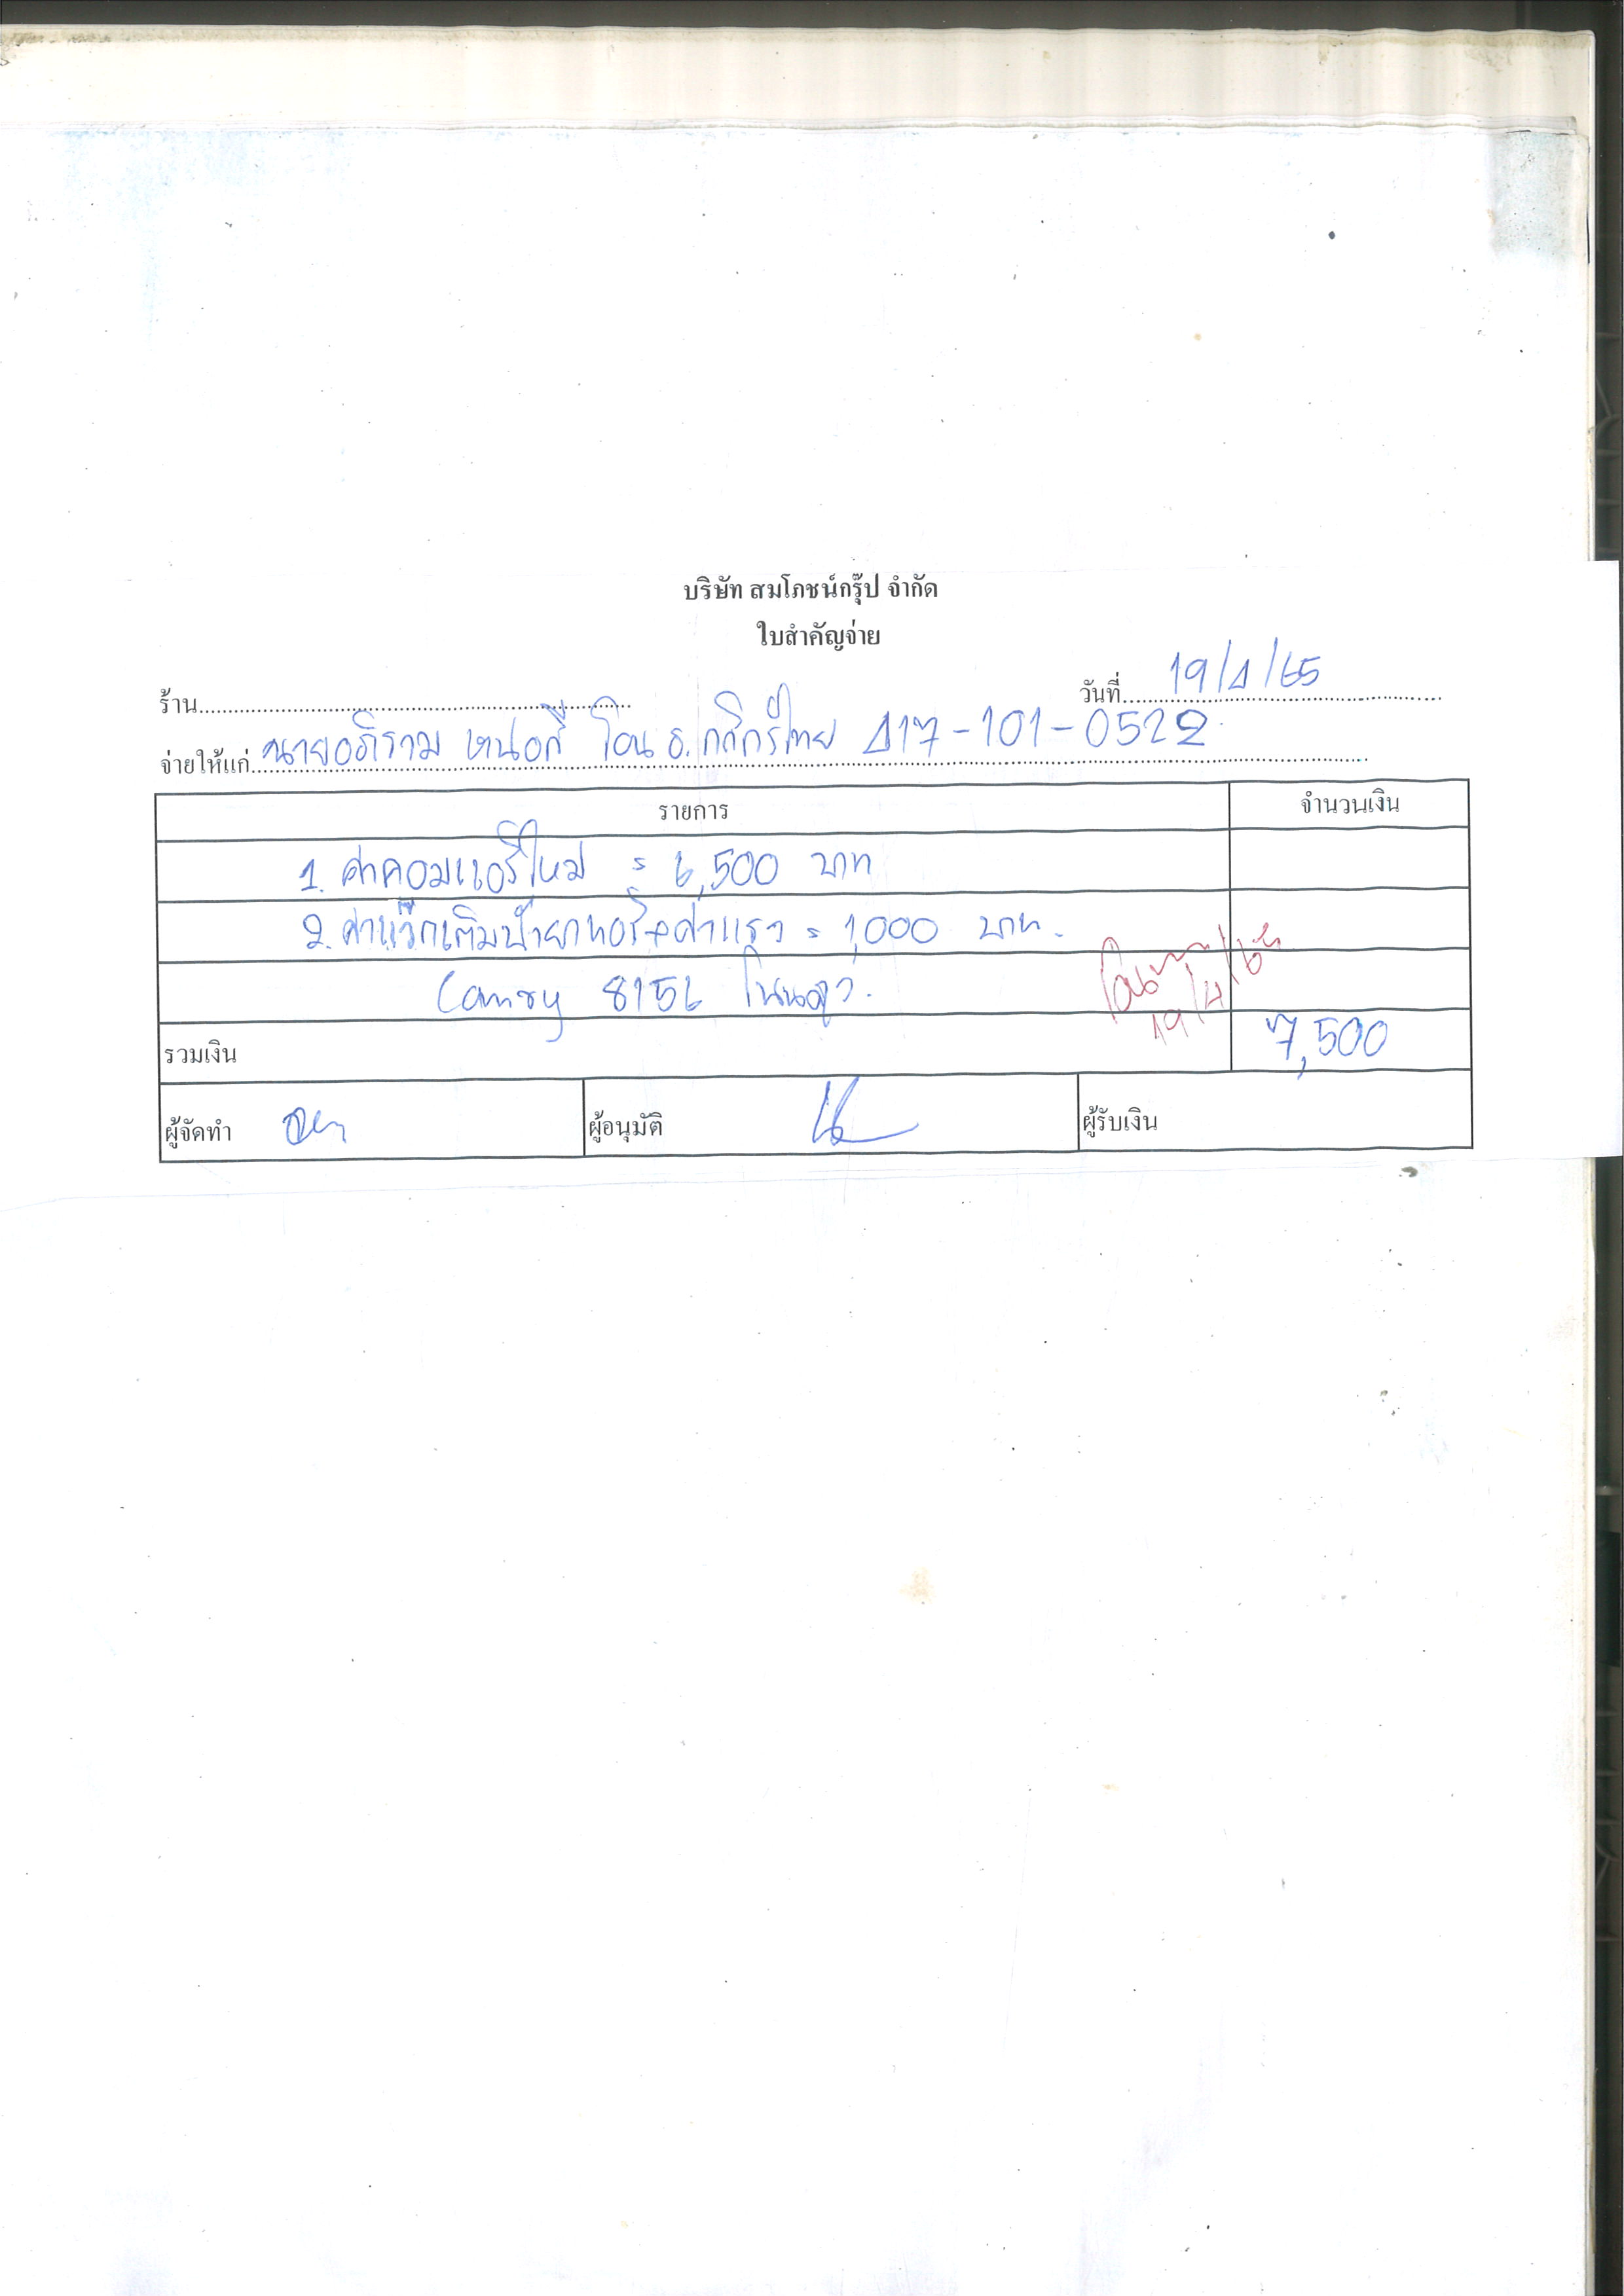 บริษัท สมโภชน์กรุ๊ป จำกัด
ใบสำคัญจ่าย
ร้าน
วันที่ 19/4/65
จ่ายให้แก่ นายอภิราม โอน ธ.กสิกรไทย 417-101-0522
รายการ จำนวนเงิน
1. ค่าคอมแอร์ใหม่ = 6,500 บาท
2. ค่าแว๊กเติมน้ำยาแอร์+ค่าแรง = 1,000 บาท.
Camry 8156
โอนแล้ว 19/4/65
รวมเงิน 7,500
ผู้จัดทำ ผู้อนุมัติ ผู้รับเงิน